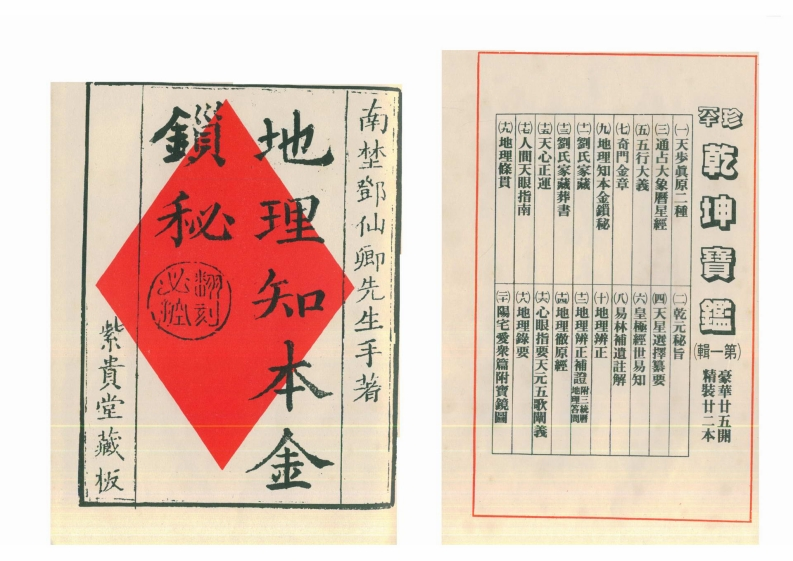 南埜鄧仙卿先生手著
地理知本金
鎖秘
翻刻
必究
紫貴堂藏板
珍罕
乾坤寶鑑
(第一輯)
豪華廿五開
精裝廿二本
㈠天步眞原二種
㈡乾元秘旨
㈢通占大象曆星經
㈣天星選擇纂要
㈤五行大義
㈥皇極經世易知
㈦奇門金章
㈧易林補遺註解
㈨地理知本金鎖秘
㈩地理辨正
(十一)劉氏家藏
(十二)地理辨正補證附三統曆地理答問
(十三)劉氏家藏葬書
(十四)地理徹原經
(十五)天心正運
(十六)心眼指要天元五歌闡義
(十七)人間天眼指南
(十八)地理錄要
(十九)地理條貫
(二十)陽宅愛衆篇附寶鏡圖